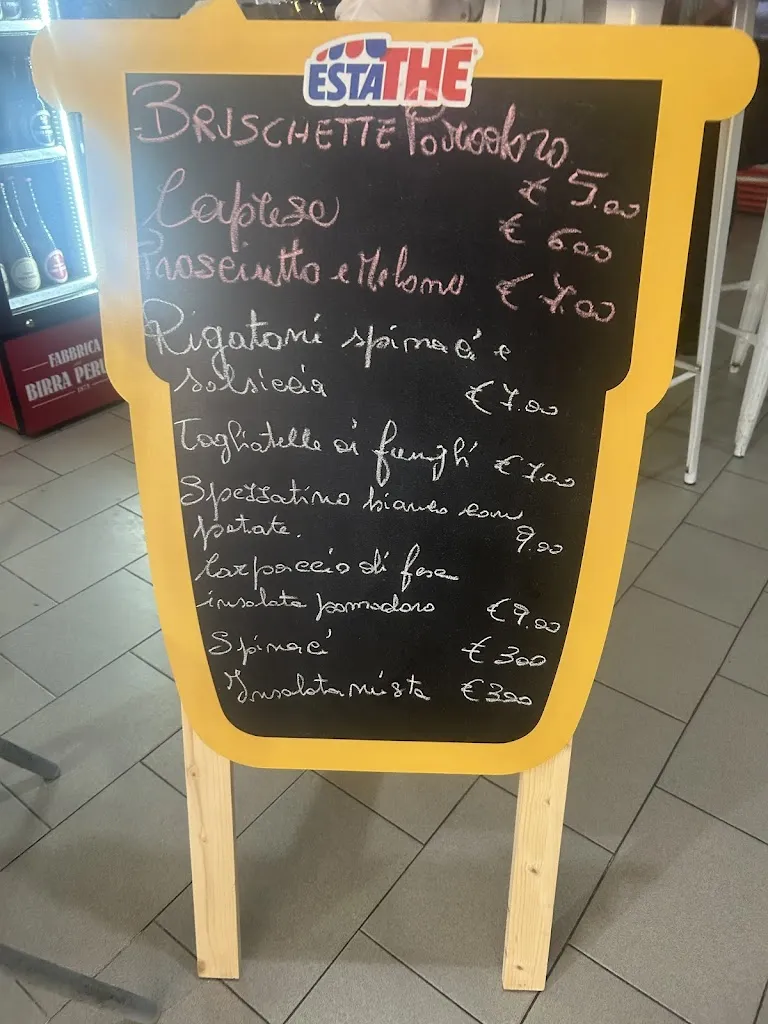 ESTATHÉ
BRUSCHETTE Pomodoro
€ 5.00
Caprese € 6.00
Prosciutto e Melone € 7.00
Rigatoni spinaci e
salsiccia €7.00
Tagliatelle ai funghi €7.00
Spezzatino bianco con
patate. 9.00
Carpaccio di fesa
insalata pomodoro €9.00
Spinaci € 3.00
Insalata mista € 3.00
FABBRICA
BIRRA PERU